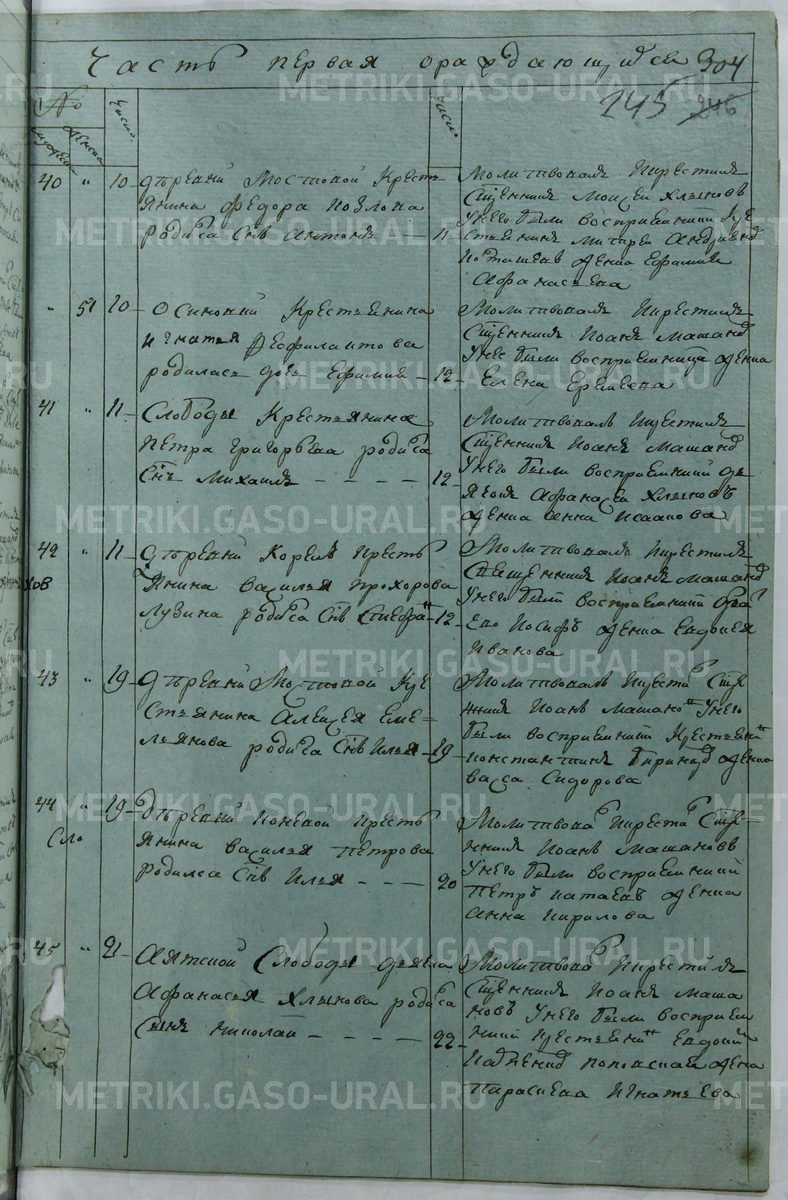 Часть первая ораждающихся 304
245 246
№
мужеск женска
число
число
40 " 10 деревни Мостовой Кресть
янина Федора Козлова
родился Снъ Антонъ 11
Молитвовалъ Икрестилъ
Сщенникъ Моисей Хлыновъ
Унего были восприемники Кре
стьянинъ
девка Ефимия
Афанасьева
" 51 10 Осиновки Крестьянина
Игнатья Феофилактова
родилась дочь Ефимия 12
Молитвовалъ Икрестилъ
Сщенникъ Иоаннъ Машано
Унее были восприемница девка
Елена Еремеева
41 " 11 Слободы Крестьянина
Петра Григорьева родился
Снъ Михаилъ 12
Молитвовалъ Икрестилъ
Сщенникъ Иоаннъ Машано
Унего были восприемники дь
яконъ Афанасей Хлыновъ
девка Анна Исакова
42 " 11 деревни Корелъ Кресть
янина Василья Прохорова
Лузина родился Снъ Стефа 12
Молитвовалъ Икрестилъ
Священникъ Иоаннъ Машано
Унего были восприемники
Иосифъ девка Евдокея
Иванова
43 " 19 деревни Мостовой Кре
стьянина Алексея Еме
льянова родился Снъ Илья 19
Молитвовалъ Икрести Сще
нникъ Иоаннъ Машано Унего
были восприемники Крестьяни
Константинъ девка
васа Сидорова
44 " 19 деревни Коневой Кресть
Сло
янина Василья Петрова
родился Снъ Илья 20
Молитвова Икрести Сще
нникъ Иоаннъ Машановъ
Унего были восприемники
Петръ Катаевъ девка
Анна Кирилова
45 " 21 Аятской Слободы дьякона
Афанасья Хлынова родился
Сынъ Николай 22
Молитвова Икрестилъ
Сщенникъ Иоаннъ Маша
новъ Унего были восприем
ники Крестьяни Евдоки
девка
Параскева Игнатьева
ков
METRIKI.GASO-URAL.RU